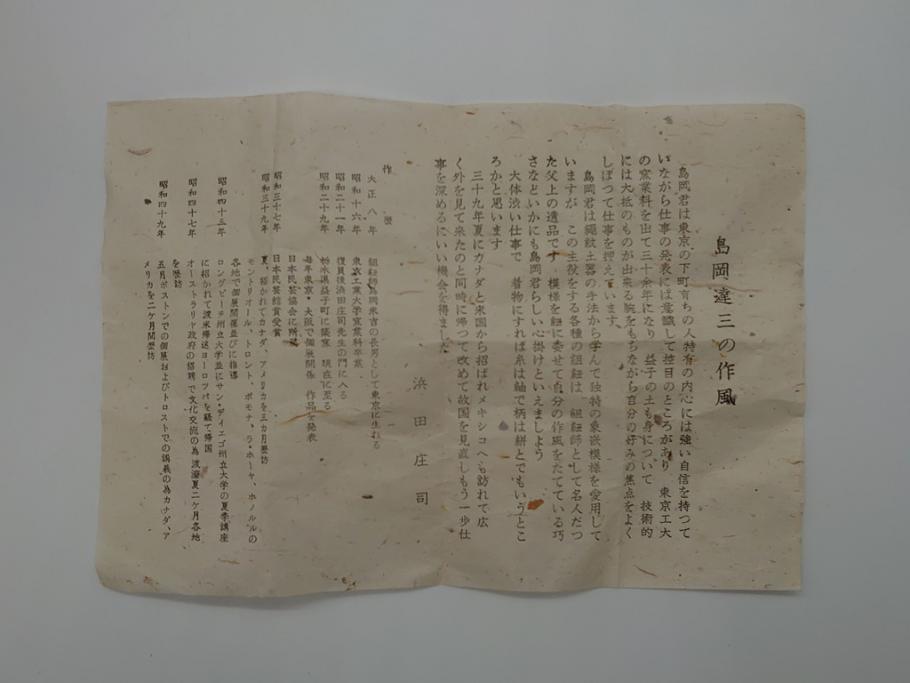 島岡達三の作風
島岡君は東京の下町育ちの人特有の内心には強い自信を持つて
いながら仕事の発表には意識して控目のところがあり 東京工大
の窯業科を出て三十余年になり 益子の土も身について 技術的
には大抵のものが出来る腕をもちながら自分の好みの焦点をよく
しぼつて仕事を押えています。
島岡君は縄紋土器の手法から学んで独特の象嵌模様を愛用して
いますが この主役をする各種の組紐は 組紐師として名人だつ
た父上の遺品です 模様を紐に委せて自分の作風をたてている巧
さなどいかにも島岡君らしい心掛けといえましよう
大体渋い仕事で 着物にすれば糸は紬で柄は絣とでもいうとこ
ろかと思います
三十九年夏にカナダと米国から招ばれメキシコへも訪れて広
く外を見て来たのと同時に帰つて改めて故国を見直しもう一歩仕
事を深めるにいい機会を得ました
浜田庄司
作歴
大正八年 組紐師島岡米吉の長男として東京に生れる
昭和十六年 東京工業大学窯業科卒業
昭和二十一年 復員後浜田庄司先生の門に入る
昭和二十九年 栃木県益子町に築窯 現在に至る
毎年東京・大阪で個展開催 作品を発表
日本民芸協会に所属
昭和三十七年 日本民芸館賞受賞
昭和三十九年 夏、招かれてカナダ、アメリカを三カ月歴訪
モントリオール、トロント、ポモナ、ラ・ホーヤ、ホノルルの
各地で個展開催並びに指導
昭和四十三年 ロングビーチ州立大学並にサン・デイエゴ州立大学の夏季講座
に招かれて渡米帰途ヨーロツパを経て帰国
昭和四十七年 オーストラリヤ政府の招聘で文化交流の為 渡濠夏二ケ月各地
を歴訪
昭和四十九年 五月ボストンでの個展およびトロストでの講義の為カナダ、ア
メリカを二ケ月間歴訪